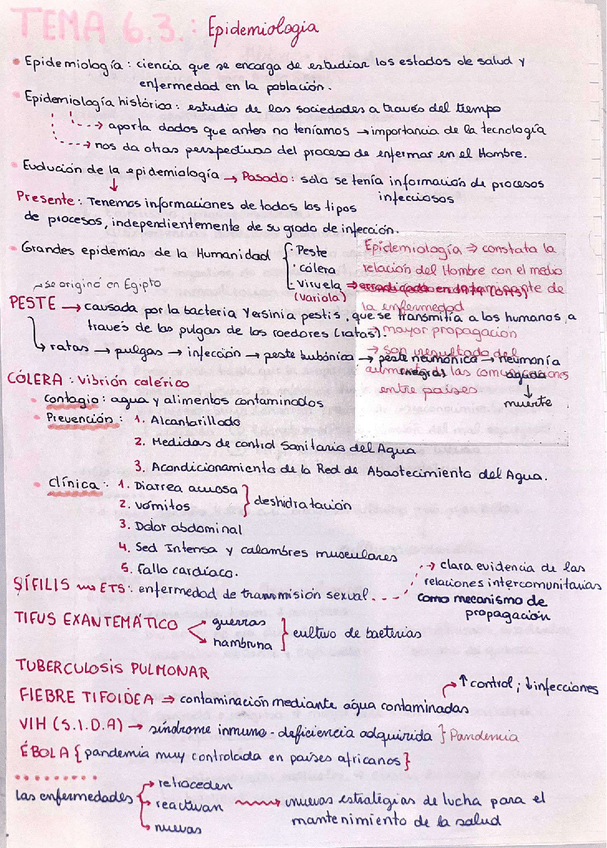 TEMA 6.3.: Epidemiología
• Epidemiología: ciencia que se encarga de estudiar los estados de salud y
enfermedad en la población.
• Epidemiología histórica: estudio de las sociedades a través del tiempo
→ aporta datos que antes no teníamos → importancia de la tecnología
→ nos da otras perspectivas del proceso de enfermar en el Hombre.
• Evolución de la epidemiología → Pasado: sólo se tenía información de procesos
infecciosos
Presente: Tenemos informaciones de todos los tipos
de procesos, independientemente de su grado de infección.
• Grandes epidemias de la Humanidad
· Peste
· cólera
· Viruela → erradicada en 1979 (OMS)
(Variola)
Epidemiología ⇒ constata la
relación del Hombre con el medio
la enfermedad
→ mayor propagación
→ son resultado del
las comunicaciones
entre países
→ se originó en Egipto
PESTE → causada por la bacteria Yersinia pestis, que se transmitía a los humanos a
través de las pulgas de los roedores (ratas).
↳ ratas → pulgas → infección → peste bubónica → peste neumónica → Neumonía
(negra)
aguda
↓
muerte.
CÓLERA: vibrión colérico
• contagio: agua y alimentos contaminados
• Prevención: 1. Alcantarillado
2. Medidas de control sanitario del Agua
3. Acondicionamiento de la Red de Abastecimiento del Agua.
• Clínica: 1. Diarrea acuosa
2. vómitos } deshidratación
3. Dolor abdominal
4. Sed Intensa y calambres musculares
5. Fallo cardíaco.
SÍFILIS → ETS: enfermedad de transmisión sexual
→ clara evidencia de las
relaciones intercomunitarias
como mecanismo de
propagación
TIFUS EXANTEMÁTICO
guerras
hambruna } cultivo de bacterias
TUBERCULOSIS PULMONAR
FIEBRE TIFOIDEA ⇒ contaminación mediante agua contaminadas
→ ↑ control; ↓ infecciones
VIH (S.I.D.A) → síndrome inmuno-deficiencia adquirida } Pandemia
ÉBOLA {pandemia muy controlada en países africanos}
Las enfermedades
→ retroceden
→ reactivan → nuevas estrategias de lucha para el
mantenimiento de la salud
→ nuevas